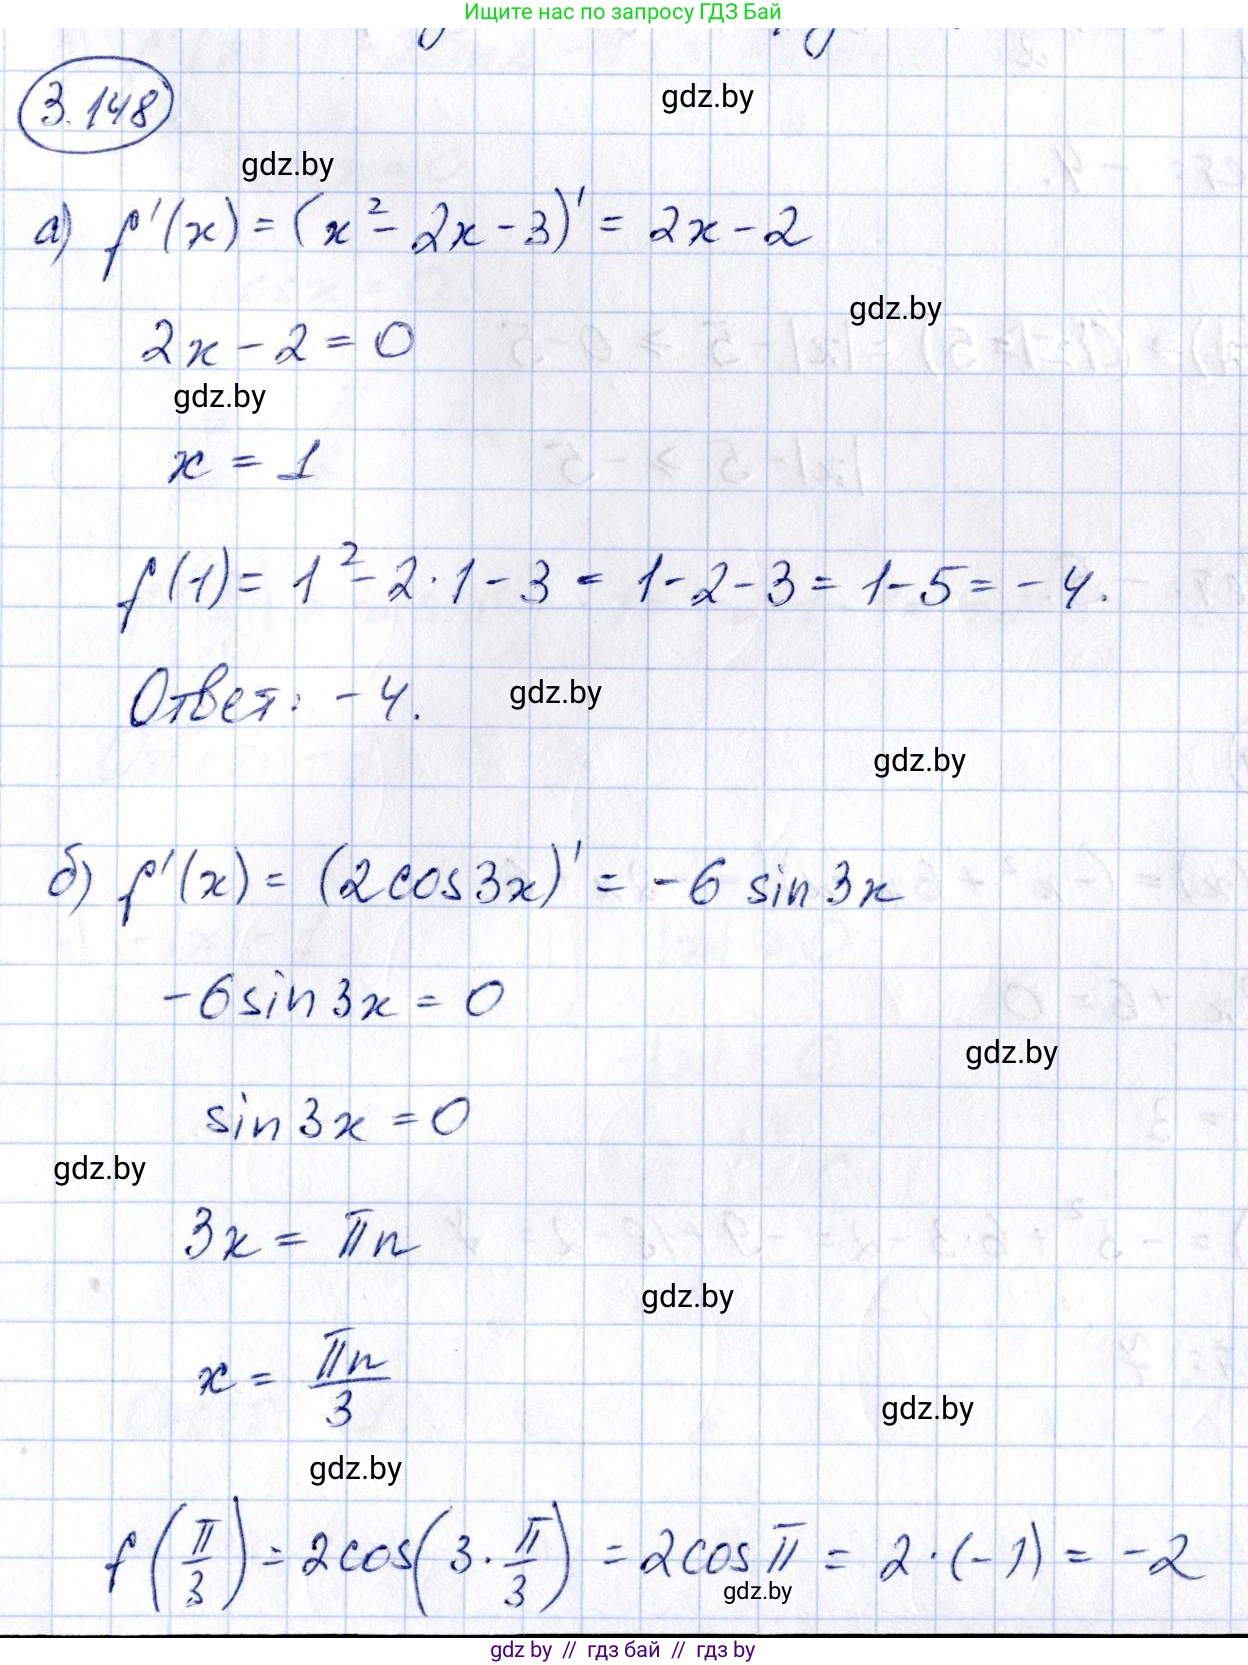 Ищите нас по запросу ГДЗ Бай
3.148
gdz.by
gdz.by
а) f'(x) = (x² - 2x - 3)' = 2x - 2
gdz.by
2x - 2 = 0
gdz.by
x = 1
f(1) = 1² - 2·1 - 3 = 1 - 2 - 3 = 1 - 5 = -4.
Ответ: -4.
gdz.by
gdz.by
б) f'(x) = (2cos3x)' = -6 sin3x
-6sin3x = 0
gdz.by
sin3x = 0
gdz.by
3x = πn
gdz.by
x = πn/3
gdz.by
gdz.by
f(π/3) = 2cos(3·π/3) = 2cosπ = 2·(-1) = -2
gdz.by
gdz by // гдз бай // гдз by